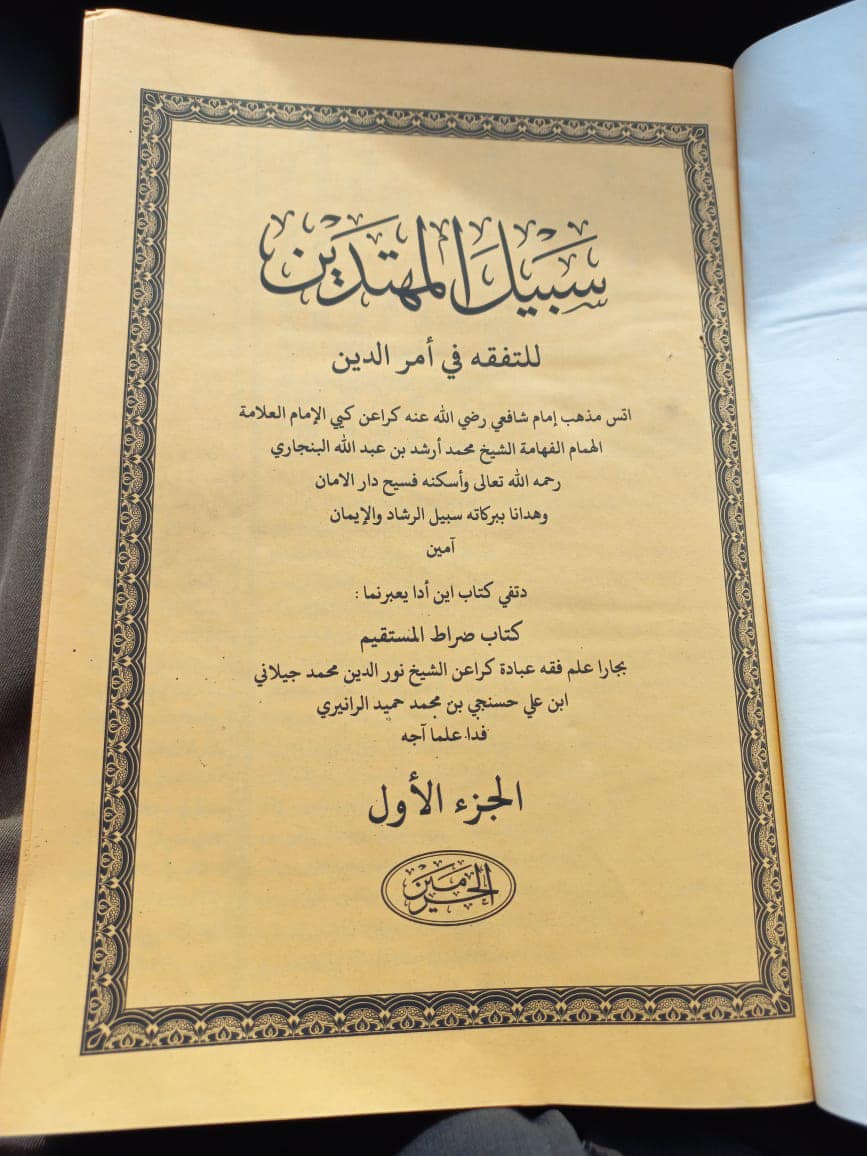 سبيل المهتدين
للتفقه في أمر الدين
اتس مذهب إمام شافعي رضي الله عنه كراعن كيي الإمام العلامة
الهمام الفهامة الشيخ محمد أرشد بن عبد الله البنجاري
رحمه الله تعالى وأسكنه فسيح دار الامان
وهدانا ببركاته سبيل الرشاد والإيمان
آمين
دتفي كتاب اين أدا يعبرنما :
كتاب صراط المستقيم
بجارا علم فقه عبادة كراعن الشيخ نور الدين محمد جيلاني
ابن علي حسنجي بن محمد حميد الرانيري
فدا علما آجه
الجزء الأول
الحرمين